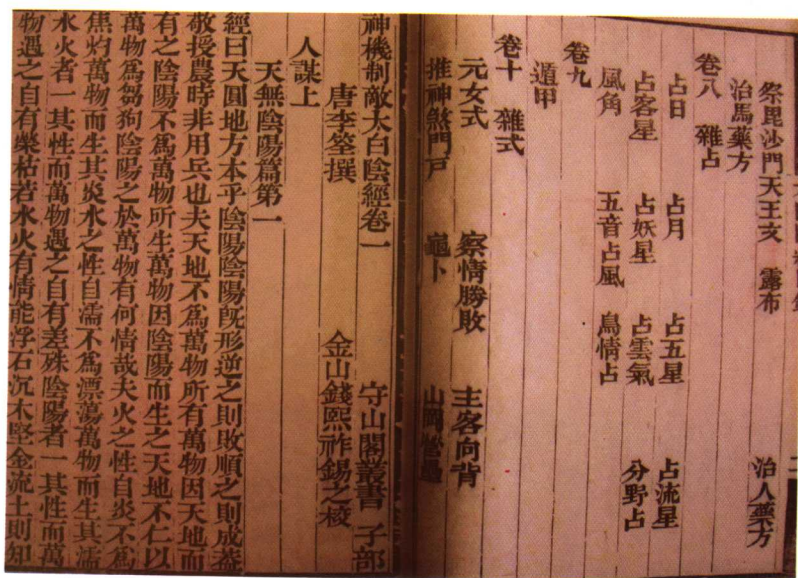 祭毘沙門天王文 露布 治人藥方
治馬藥方
卷八 雜占
占日 占月 占五星 占流星
占客星 占妖星 占雲氣 分野占
風角 五音占風 鳥情占
卷九
遁甲
卷十 雜式
元女式 察情勝敗 主客向背
推神煞門戶 龜卜 山岡
神機制敵太白陰經卷一 守山閣叢書 子部
唐李筌撰 金山錢熙祚錫之校
人謀上
天無陰陽篇第一
經曰天圓地方本乎陰陽陰陽既形逆之則敗順之則成蓋
敬授農時非用兵也夫天地不為萬物所有萬物因天地而
有之陰陽不為萬物所生萬物因陰陽而生之天地不仁以
萬物為芻狗陰陽之於萬物有何情哉夫火之性自炎不為
焦灼萬物而生其炎水之性自濡不為漂蕩萬物而生其濡
水火者一其性而萬物遇之自有差殊陰陽者一其性而萬
物遇之自有榮枯若水火有情能浮石沉木堅金流土則知